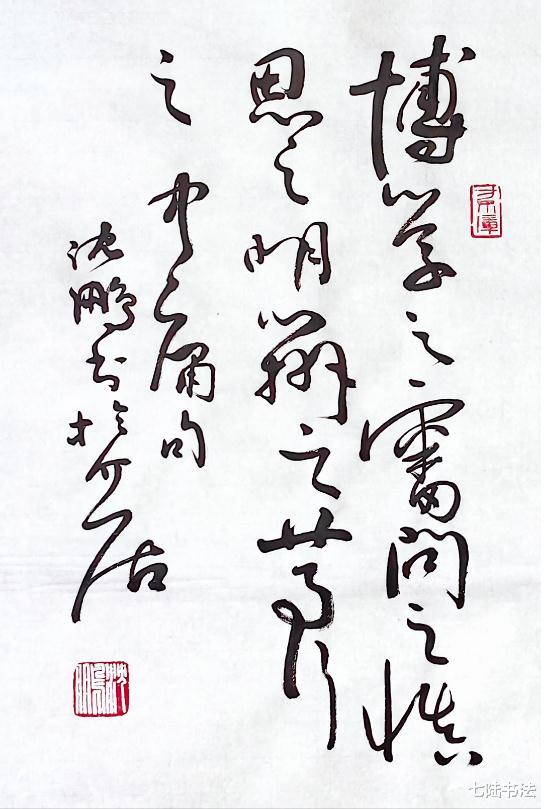 博学之審問之慎
思之明辨之篤行
之 中庸句
沈鵬书於介居
七陆书法